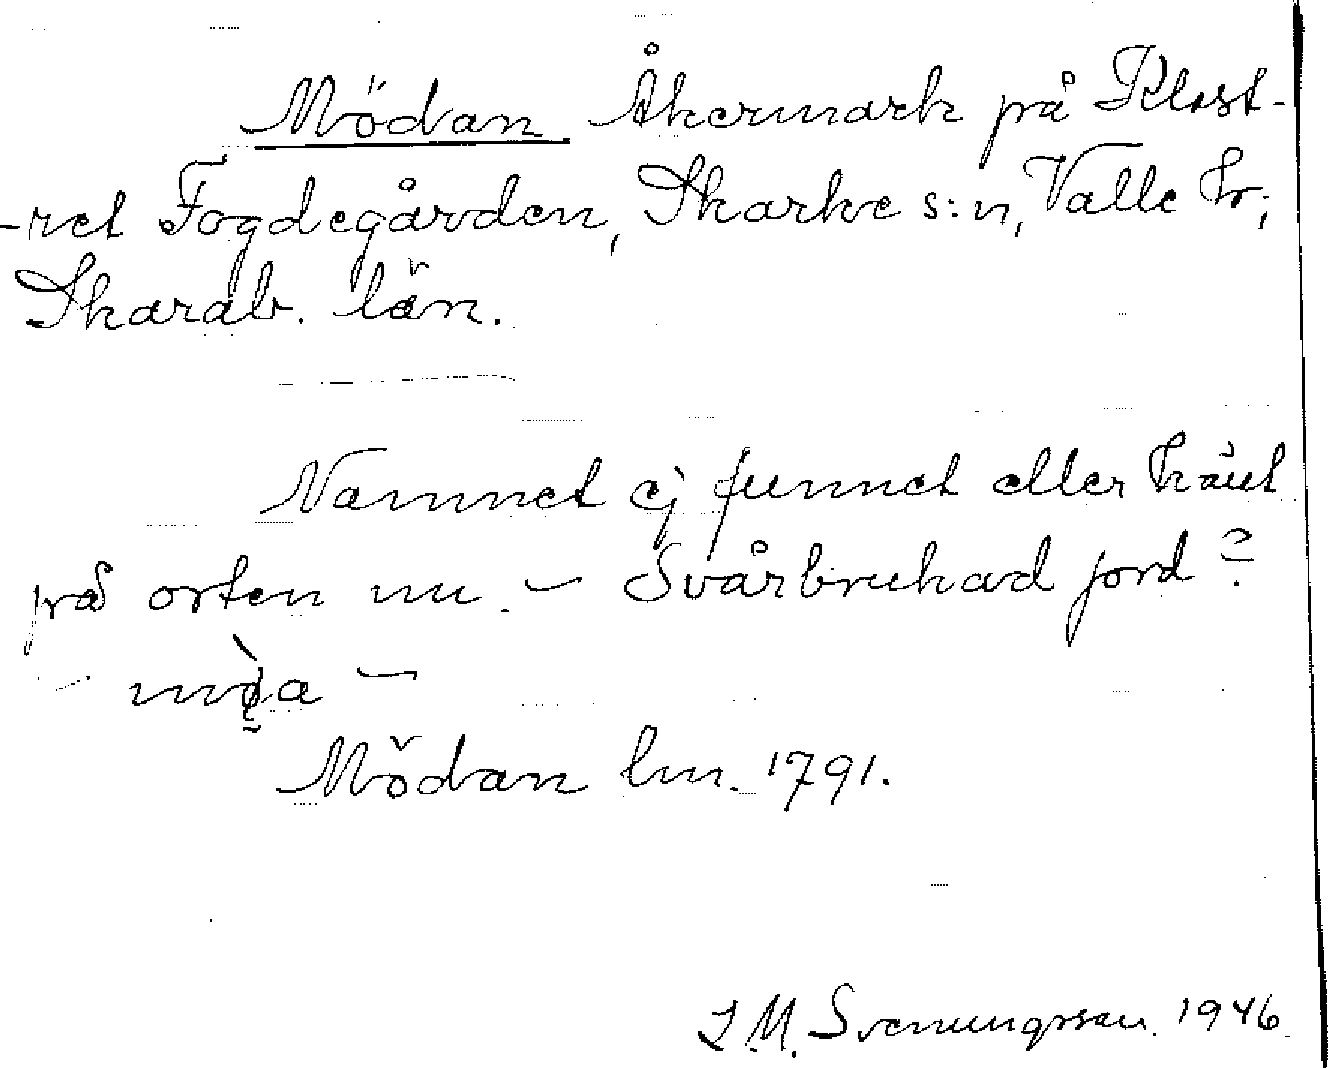 Mödan Åkermark på Klost-
-ret Fogdegården, Skarke s:n, Valle hr;
Skarab. län.
Namnet ej funnet eller känt
på orten nu. - Svårbrukad jord?
- möa -
Mödan lm. 1791.
J. M. Svenungsson. 1946.